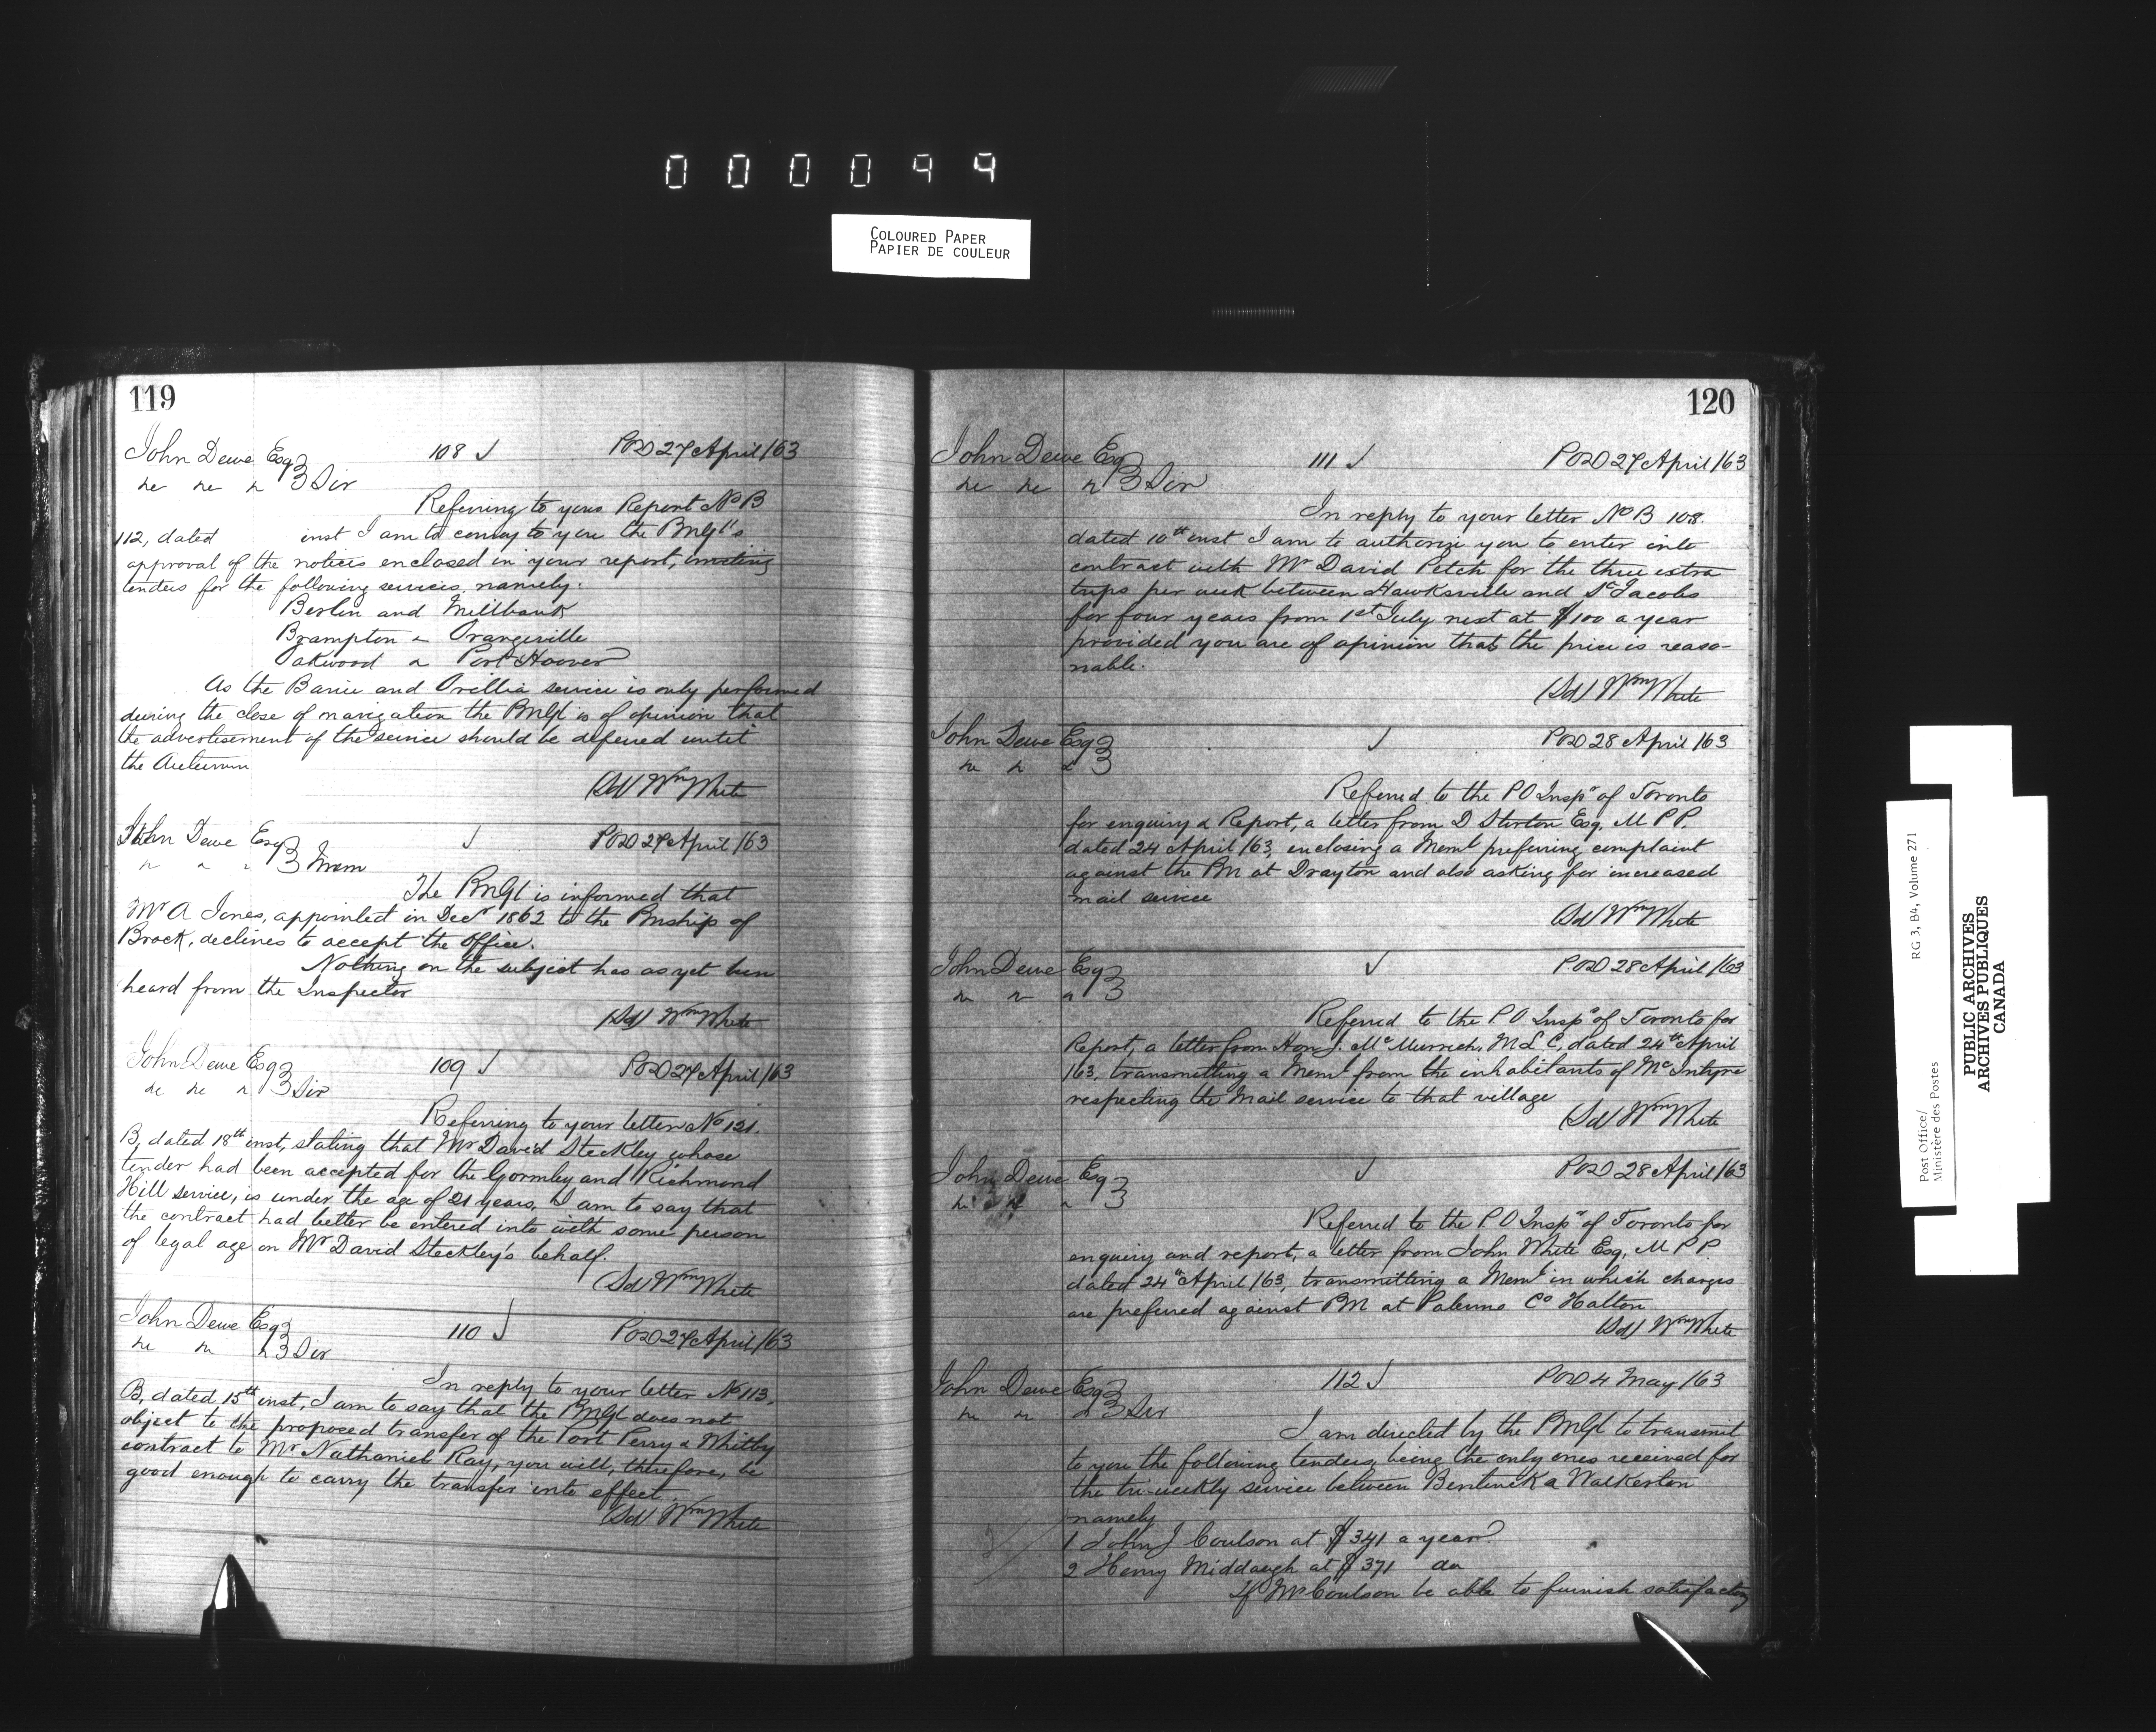 000099
COLOURED PAPER
PAPIER DE COULEUR
119
John Dewe Esq 108 ✓ POD 27 April/63
" " " Sir
Referring to your Report No B
112, dated inst I am to convey to you the PMGl's
approval of the notices enclosed in your report, inviting
tenders for the following services, namely:
Berlin and Millbank
Brampton " Orangeville
Oakwood " Port Hoover
As the Barrie and Orillia service is only performed
during the close of navigation the PMGl is of opinion that
the advertisement of the service should be deferred until
the Autumn
(Sd) Wm White
John Dewe Esq ✓ POD 27 April/63
" " " Mem
The PMGl is informed that
Mr A Jones, appointed in Decr 1862 to the PMship of
Brock, declines to accept the office.
Nothing on the subject has as yet been
heard from the Inspector
(Sd) Wm White
John Dewe Esq 109 ✓ POD 27 April/63
" " " Sir
Referring to your letter No 121.
B, dated 18th inst, stating that Mr David Steckley whose
tender had been accepted for the Gormley and Richmond
Hill service, is under the age of 21 years, I am to say that
the contract had better be entered into with some person
of legal age on Mr David Steckley's behalf.
(Sd) Wm White
John Dewe Esq 110 ✓ POD 27 April/63
" " " Sir
In reply to your letter No 113,
B, dated 15th inst, I am to say that the PMGl does not
object to the proposed transfer of the Port Perry & Whitby
contract to Mr Nathaniel Ray, you will, therefore, be
good enough to carry the transfer into effect.
(Sd) Wm White
120
John Dewe Esq 111 ✓ POD 27 April/63
" " " Sir
In reply to your letter No B 108.
dated 10th inst I am to authorize you to enter into
contract with Mr David Petch for the three extra
trips per week between Hawksville and St Jacobs
for four years from 1st July next at $100 a year
provided you are of opinion that the price is reaso-
nable.
(Sd) Wm White
John Dewe Esq ✓ POD 28 April/63
" " "
Referred to the PO Inspr of Toronto
for enquiry & Report, a letter from D Stirton Esq, M P P.
dated 24 April/63, enclosing a Meml preferring complaint
against the PM at Drayton and also asking for increased
mail service
(Sd) Wm White
John Dewe Esq ✓ POD 28 April/63
" " "
Referred to the P O Inspr of Toronto for
Report, a letter from Hon J. McMurrich, M L C, dated 24th April
/63, transmitting a Meml from the inhabitants of McIntyre
respecting the Mail service to that village
(Sd) Wm White
John Dewe Esq ✓ POD 28 April/63
" " "
Referred to the P O Inspr of Toronto for
enquiry and report, a letter from John White Esq, M P P
dated 24th April/63, transmitting a Meml in which charges
are preferred against PM at Palermo Co Halton
(Sd) Wm White
John Dewe Esq 112 ✓ POD 4 May/63
" " " Sir
I am directed by the PMGl to transmit
to you the following tenders, being the only ones received for
the tri-weekly service between Bentinck & Walkerton
namely
1 John J Coulson at $341 a year
2 Henry Middaugh at $371 do
If Mr Coulson be able to furnish satisfactory
RG 3, B4, Volume 271
Post Office/
Ministère des Postes
PUBLIC ARCHIVES
ARCHIVES PUBLIQUES
CANADA